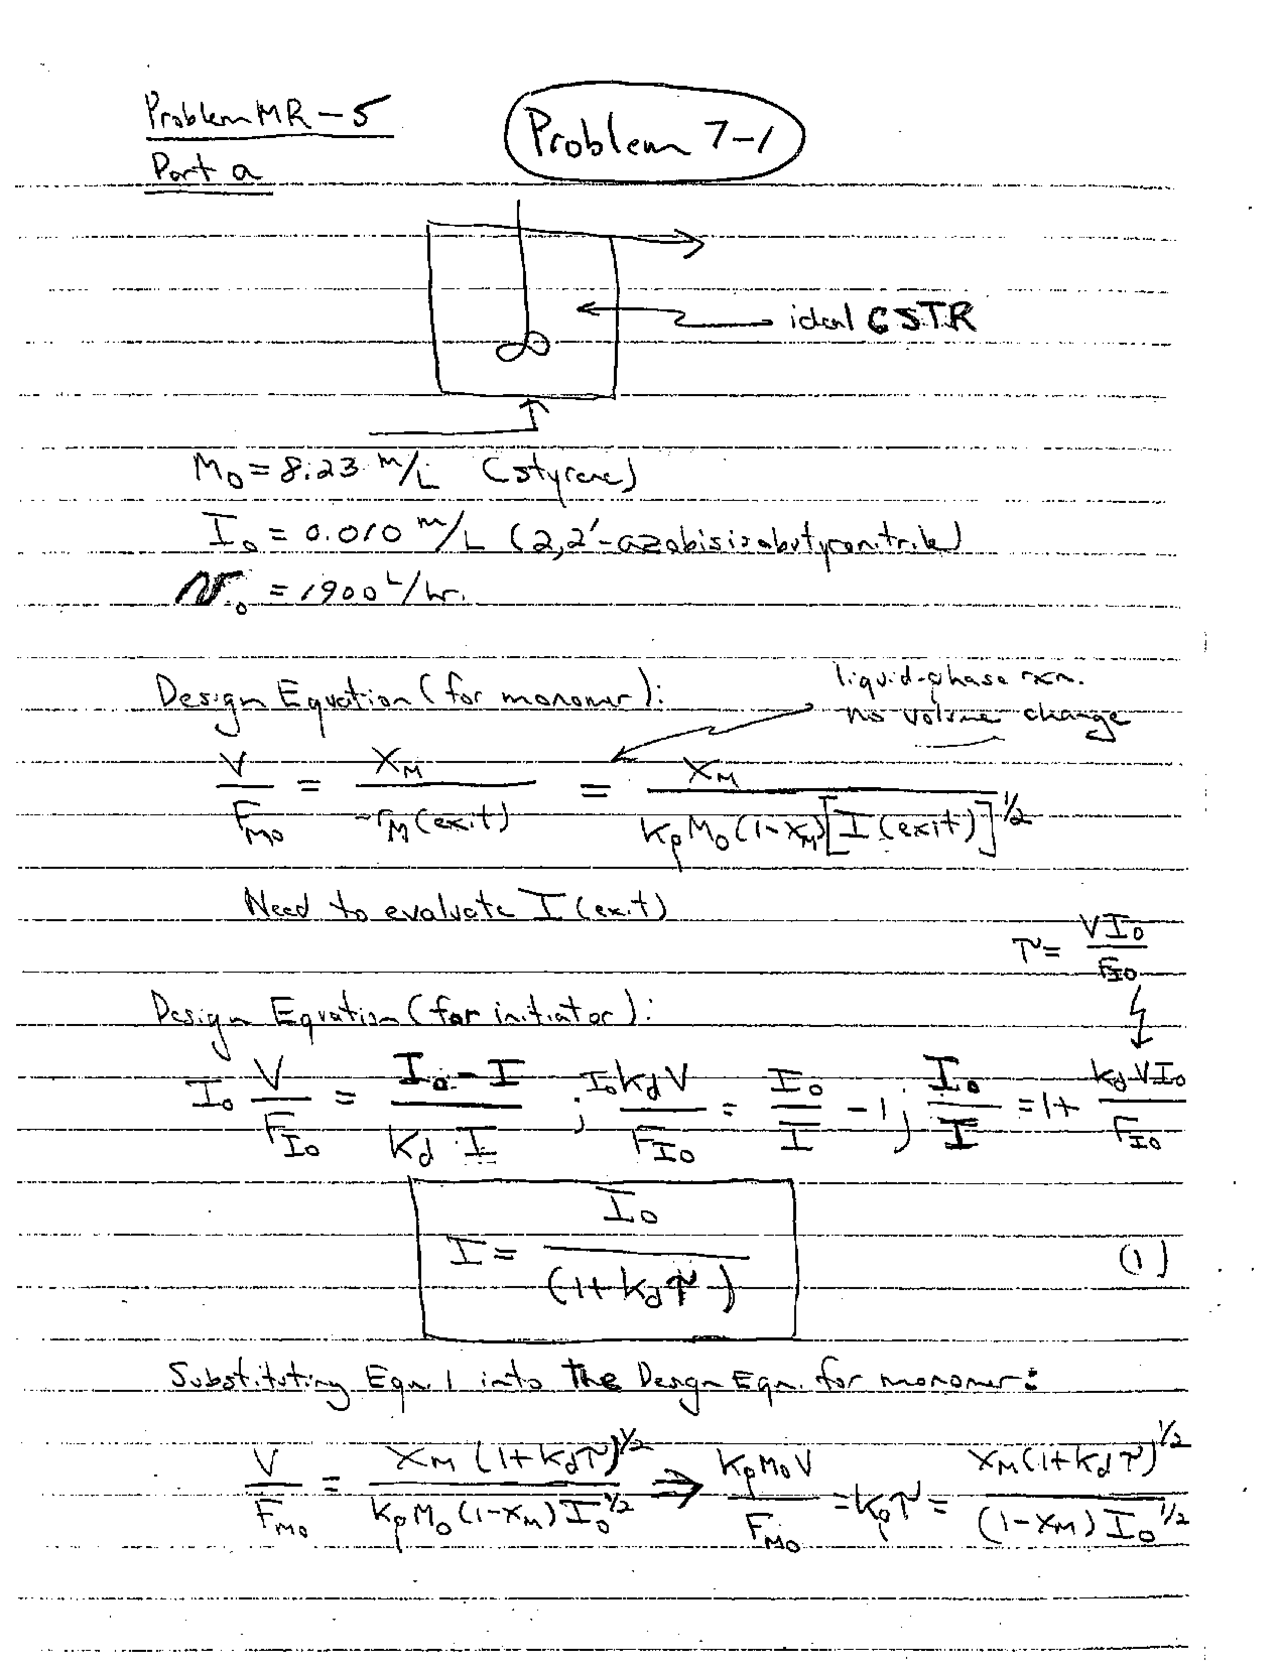 Problem MR-5
Problem 7-1
Part a
ideal CSTR
M₀ = 8.23 m/L (styrene)
I₀ = 0.010 m/L (2,2'-azobisisobutyronitrile)
v₀ = 1900 L/hr.
liquid-phase rxn.
Design Equation (for monomer):
no volume change
V/F_M₀ = X_M/-r_M(exit) = X_M/k_p M₀(1-X_M)[I(exit)]^1/2
Need to evaluate I(exit)
τ = VI₀/F_I₀
Design Equation (for initiator):
I₀ V/F_I₀ = I₀-I/k_d I ; I₀k_dV/F_I₀ = I₀/I - 1 ; I₀/I = 1 + k_dVI₀/F_I₀
I = I₀/(1+k_dτ) (1)
Substituting Eqn. 1 into the Design Eqn. for monomer:
V/F_M₀ = X_M(1+k_dτ)^1/2/k_pM₀(1-X_M)I₀^1/2 ⇒ k_pM₀V/F_M₀ = k_pτ = X_M(1+k_dτ)^1/2/(1-X_M)I₀^1/2